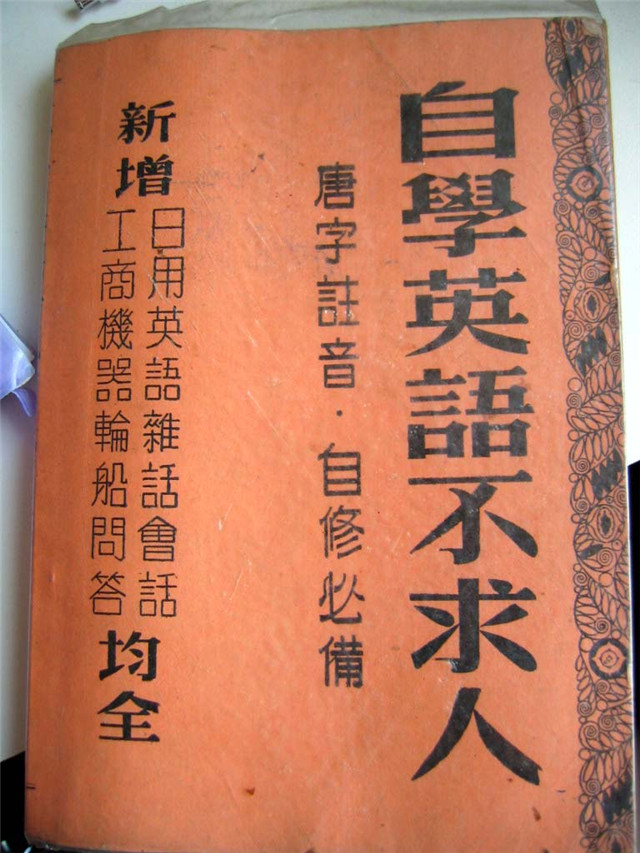 自學英語不求人
唐字註音·自修必備
新增
日用英語雜話會話
工商機器輪船問答
均全